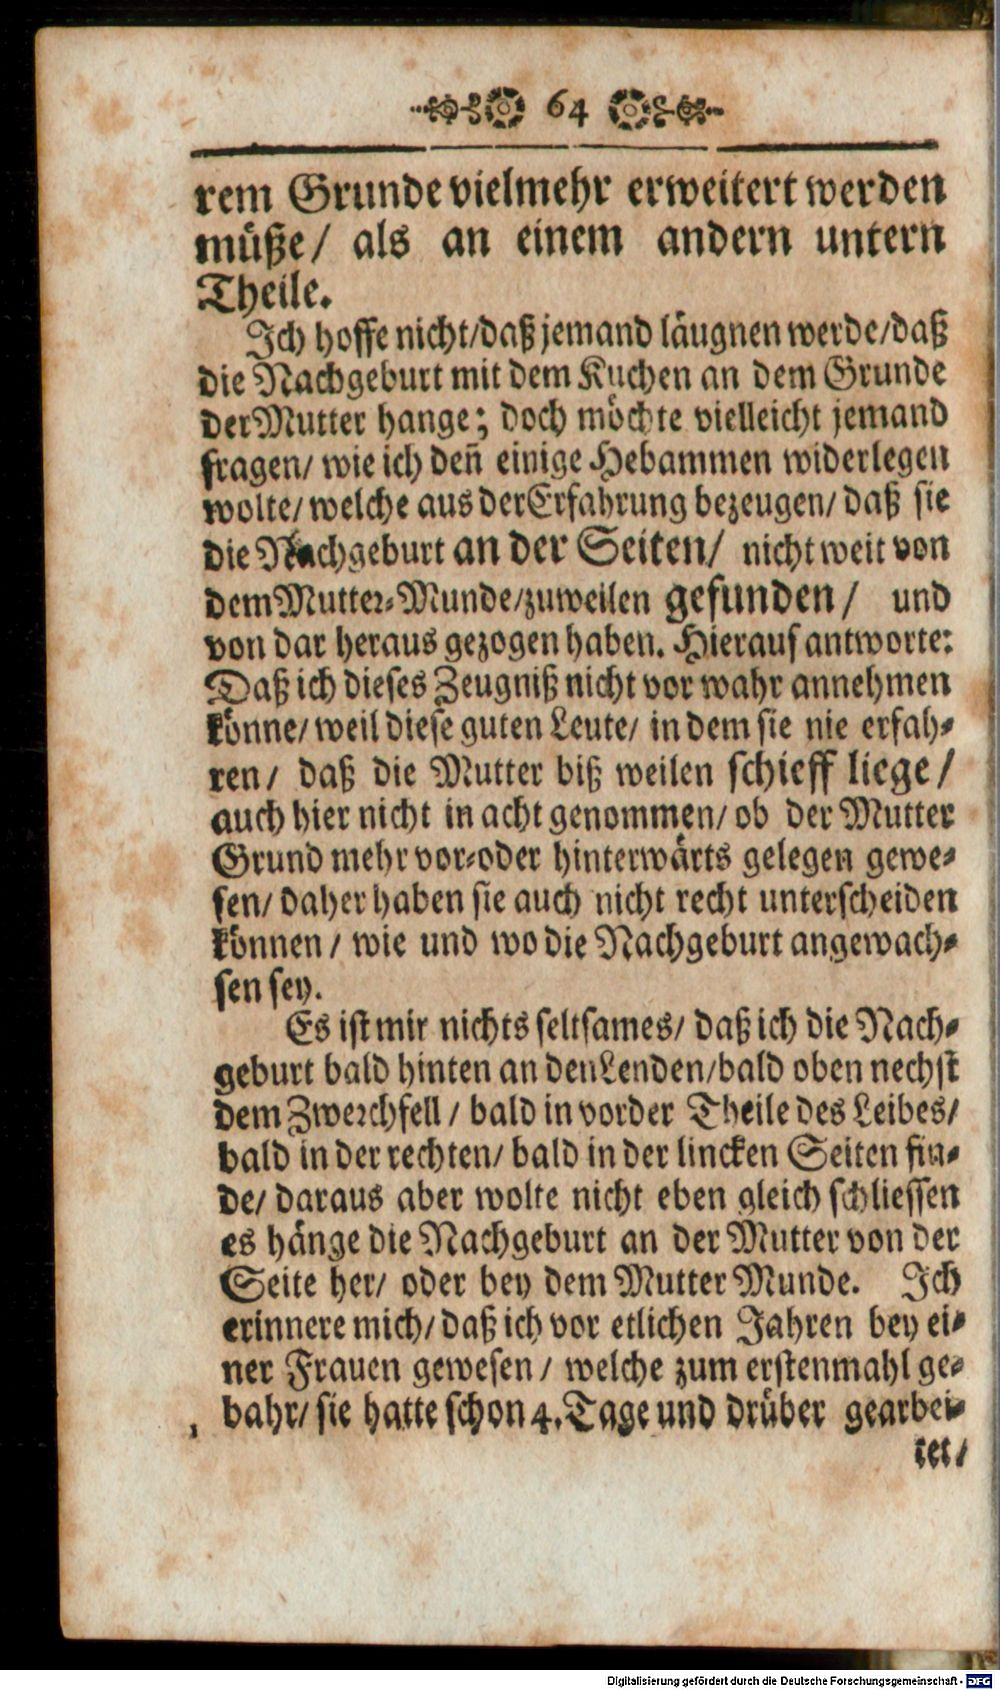 64
rem Grunde vielmehr erweitert werden
müße/ als an einem andern untern
Theile.
Ich hoffe nicht/daß jemand läugnen werde/daß
die Nachgeburt mit dem Kuchen an dem Grunde
der Mutter hange; doch möchte vielleicht jemand
fragen/ wie ich deñ einige Hebammen widerlegen
wolte/ welche aus der Erfahrung bezeugen/ daß sie
die Nachgeburt an der Seiten/ nicht weit von
dem Mutter-Munde/zuweilen gefunden/ und
von dar heraus gezogen haben. Hierauf antworte:
Daß ich dieses Zeugniß nicht vor wahr annehmen
könne/ weil diese guten Leute/ in dem sie nie erfah-
ren/ daß die Mutter biß weilen schieff liege/
auch hier nicht in acht genommen/ ob der Mutter
Grund mehr vor-oder hinterwärts gelegen gewe-
sen/ daher haben sie auch nicht recht unterscheiden
können/ wie und wo die Nachgeburt angewach-
sen sey.
Es ist mir nichts seltsames/ daß ich die Nach-
geburt bald hinten an den Lenden/bald oben nechst
dem Zwerchfell/ bald in vorder Theile des Leibes/
bald in der rechten/ bald in der lincken Seiten fin-
de/ daraus aber wolte nicht eben gleich schliessen
es hänge die Nachgeburt an der Mutter von der
Seite her/ oder bey dem Mutter Munde. Ich
erinnere mich/ daß ich vor etlichen Jahren bey ei-
ner Frauen gewesen/ welche zum erstenmahl ge-
bahr/ sie hatte schon 4. Tage und drüber gearbei-
tet/
Digitalisierung gefördert durch die Deutsche Forschungsgemeinschaft - DFG